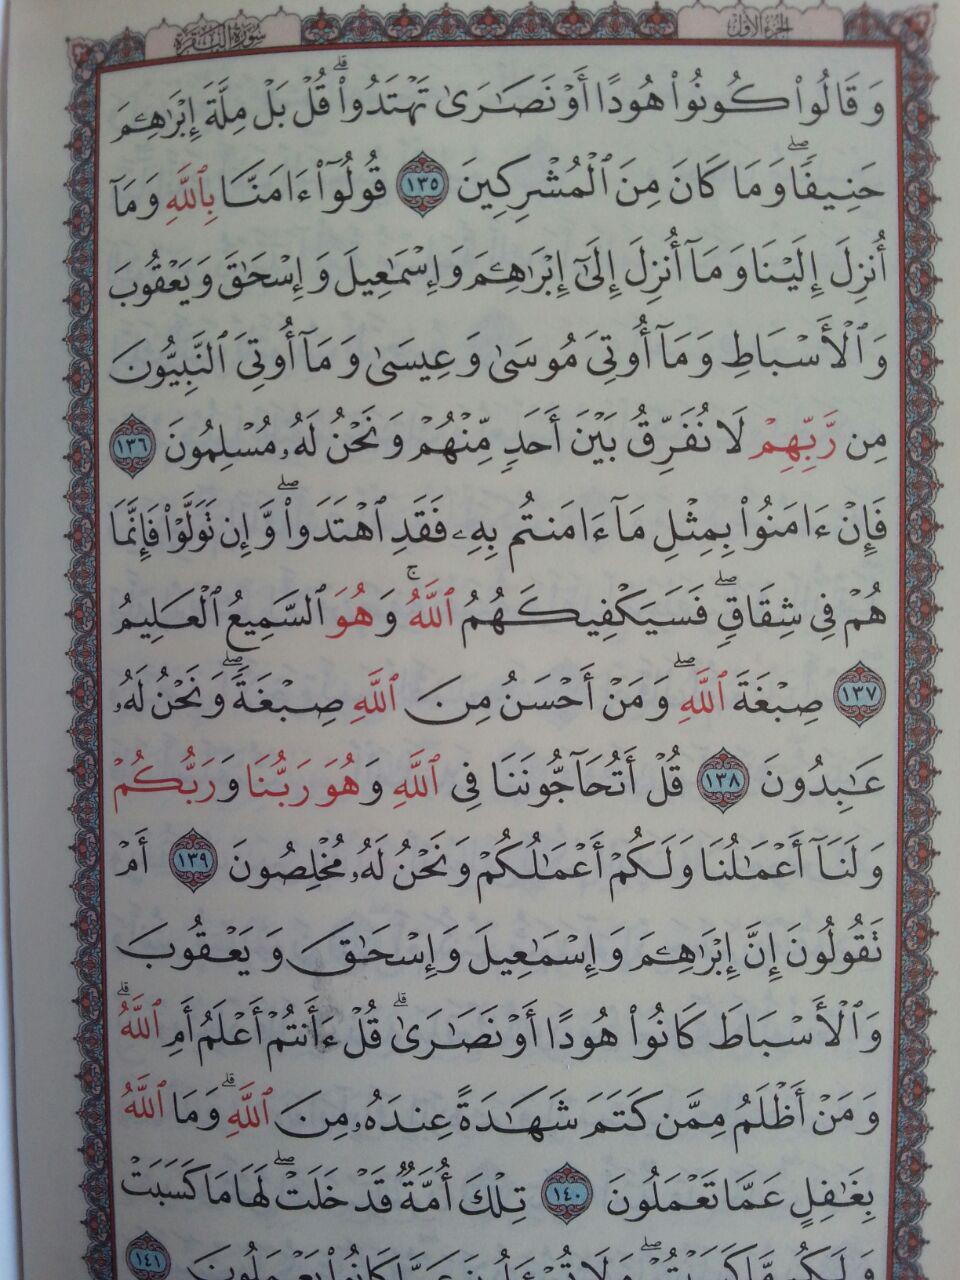 سورة البقرة الجزء الأول
وَقَالُوا۟ كُونُوا۟ هُودًا أَوْ نَصَـٰرَىٰ تَهْتَدُوا۟ ۗ قُلْ بَلْ مِلَّةَ إِبْرَٰهِـۧمَ
حَنِيفًا ۖ وَمَا كَانَ مِنَ ٱلْمُشْرِكِينَ ١٣٥ قُولُوٓا۟ ءَامَنَّا بِٱللَّهِ وَمَآ
أُنزِلَ إِلَيْنَا وَمَآ أُنزِلَ إِلَىٰٓ إِبْرَٰهِـۧمَ وَإِسْمَـٰعِيلَ وَإِسْحَـٰقَ وَيَعْقُوبَ
وَٱلْأَسْبَاطِ وَمَآ أُوتِىَ مُوسَىٰ وَعِيسَىٰ وَمَآ أُوتِىَ ٱلنَّبِيُّونَ
مِن رَّبِّهِمْ لَا نُفَرِّقُ بَيْنَ أَحَدٍ مِّنْهُمْ وَنَحْنُ لَهُۥ مُسْلِمُونَ ١٣٦
فَإِنْ ءَامَنُوا۟ بِمِثْلِ مَآ ءَامَنتُم بِهِۦ فَقَدِ ٱهْتَدَوا۟ ۖ وَّإِن تَوَلَّوْا۟ فَإِنَّمَا
هُمْ فِى شِقَاقٍ ۖ فَسَيَكْفِيكَهُمُ ٱللَّهُ ۚ وَهُوَ ٱلسَّمِيعُ ٱلْعَلِيمُ
١٣٧ صِبْغَةَ ٱللَّهِ ۖ وَمَنْ أَحْسَنُ مِنَ ٱللَّهِ صِبْغَةً ۖ وَنَحْنُ لَهُۥ
عَـٰبِدُونَ ١٣٨ قُلْ أَتُحَآجُّونَنَا فِى ٱللَّهِ وَهُوَ رَبُّنَا وَرَبُّكُمْ
وَلَنَآ أَعْمَـٰلُنَا وَلَكُمْ أَعْمَـٰلُكُمْ وَنَحْنُ لَهُۥ مُخْلِصُونَ ١٣٩ أَمْ
تَقُولُونَ إِنَّ إِبْرَٰهِـۧمَ وَإِسْمَـٰعِيلَ وَإِسْحَـٰقَ وَيَعْقُوبَ
وَٱلْأَسْبَاطَ كَانُوا۟ هُودًا أَوْ نَصَـٰرَىٰ ۗ قُلْ ءَأَنتُمْ أَعْلَمُ أَمِ ٱللَّهُ ۗ
وَمَنْ أَظْلَمُ مِمَّن كَتَمَ شَهَـٰدَةً عِندَهُۥ مِنَ ٱللَّهِ ۗ وَمَا ٱللَّهُ
بِغَـٰفِلٍ عَمَّا تَعْمَلُونَ ١٤٠ تِلْكَ أُمَّةٌ قَدْ خَلَتْ ۖ لَهَا مَا كَسَبَتْ
وَلَكُم مَّا كَسَبْتُمْ ۖ وَلَا تُسْـَٔلُونَ عَمَّا كَانُوا۟ يَعْمَلُونَ ١٤١